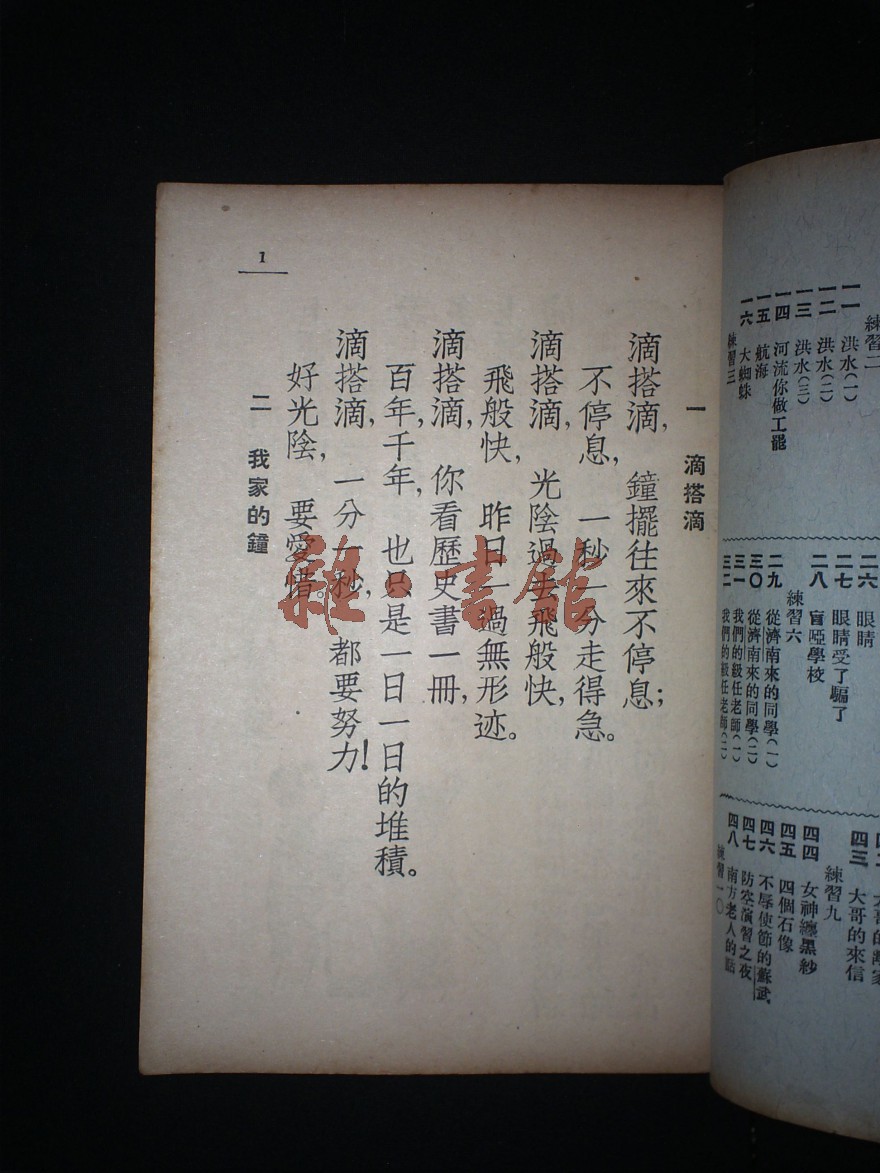 練習二
一一 洪水(一)
一二 洪水(二)
一三 洪水(三)
一四 河流你做工罷
一五 航海
一六 大蜘蛛
練習三
二六 眼睛
二七 眼睛受了騙了
二八 盲啞學校
練習六
二九 從濟南來的同學(一)
三〇 從濟南來的同學(二)
三一 我們的級任老師(一)
三二 我們的級任老師(二)
四三 大哥的來信
練習九
四四 女神纏黑紗
四五 四個石像
四六 不辱使節的蘇武
四七 防空演習之夜
四八 南方老人的話
練習一〇
1
一 滴搭滴
滴搭滴,鐘擺往來不停息;
不停息,一秒一分走得急。
滴搭滴,光陰過去飛般快,
飛般快,昨日一過無形迹。
滴搭滴,你看歷史書一冊,
百年,千年,也只是一日一日的堆積。
滴搭滴,一分一秒,都要努力!
好光陰,要愛惜。
二 我家的鐘
雜·書館